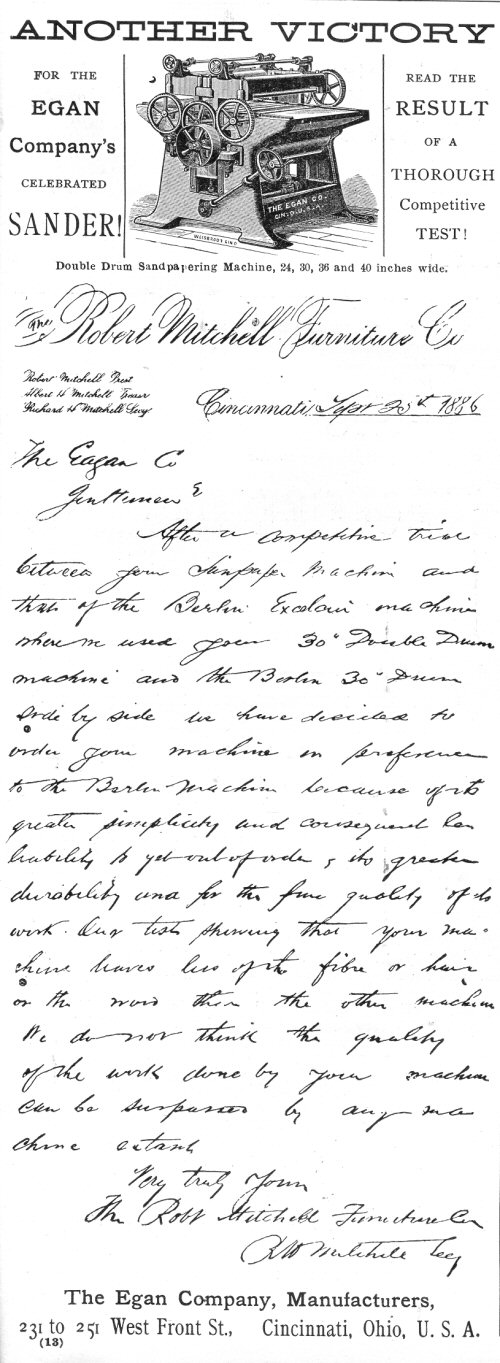 ANOTHER VICTORY
FOR THE
EGAN
Company's
CELEBRATED
SANDER!
THE EGAN CO.
CIN. O., U. S. A.
READ THE
RESULT
OF A
THOROUGH
Competitive
TEST!
Double Drum Sandpapering Machine, 24, 30, 36 and 40 inches wide.
The Robert Mitchell Furniture Co
Robert Mitchell Prest
Albert H Mitchell Treasr
Richard H Mitchell Secy
Cincinnati, Sept 25th 1886
The Eagan Co
Gentlemen
After a competitive trial
between your Sandpaper Machine and
that of the Berlin machine
where we used your 30" Double Drum
machine and the Berlin 30" Drum
side by side we have decided to
order your machine in preference
to the Berlin Machine because of its
greater simplicity and consequent less
liability to get out of order, its greater
durability and for the fine quality of its
work. Our tests showing that your ma-
chine leaves less of the fibre or hair
on the wood than the other machine
We do not think the quality
of the work done by your machine
can be surpassed by any ma
chine extant
Very truly Yours
The Robt Mitchell Furniture Co
R H Mitchell Secy
The Egan Company, Manufacturers,
231 to 251 West Front St., Cincinnati, Ohio, U. S. A.
(13)